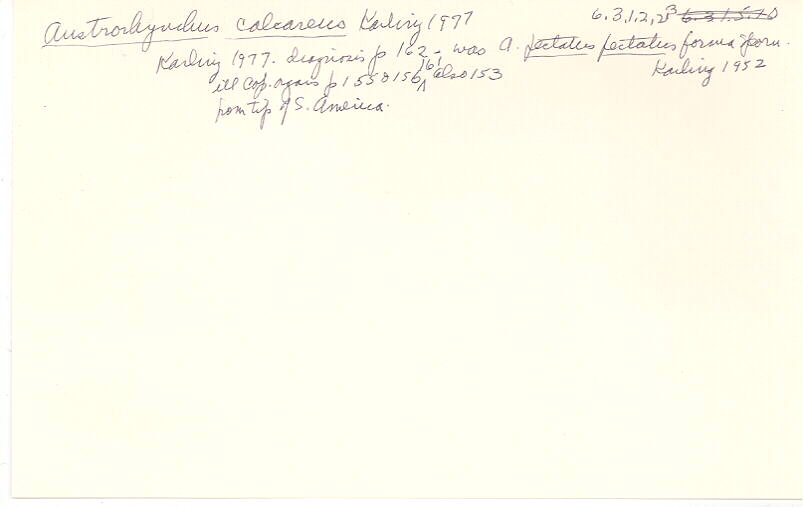 Austrorhynchus calcareus Karling 1977 6.3.1.2.2.3 6.3.1.5.10
Karling 1977. diagnosis p 162 - was A. pectatus pectatus forma
ill cop. organ p 155 & 156, 161 also 153 Karling 1952
from tip of S. America.